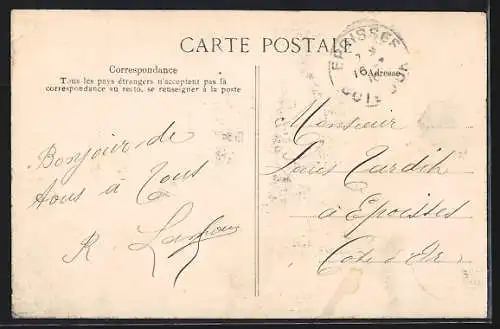 CARTE POSTALE
Correspondance
Tous les pays étrangers n'acceptent pas la
correspondance au recto, se renseigner à la poste
Adresse
EPOISSES
16
COTE D'OR
Bonjour de
tous à Tous
R
Monsieur
Louis Tardih
à Epoisses
Côte d'Or